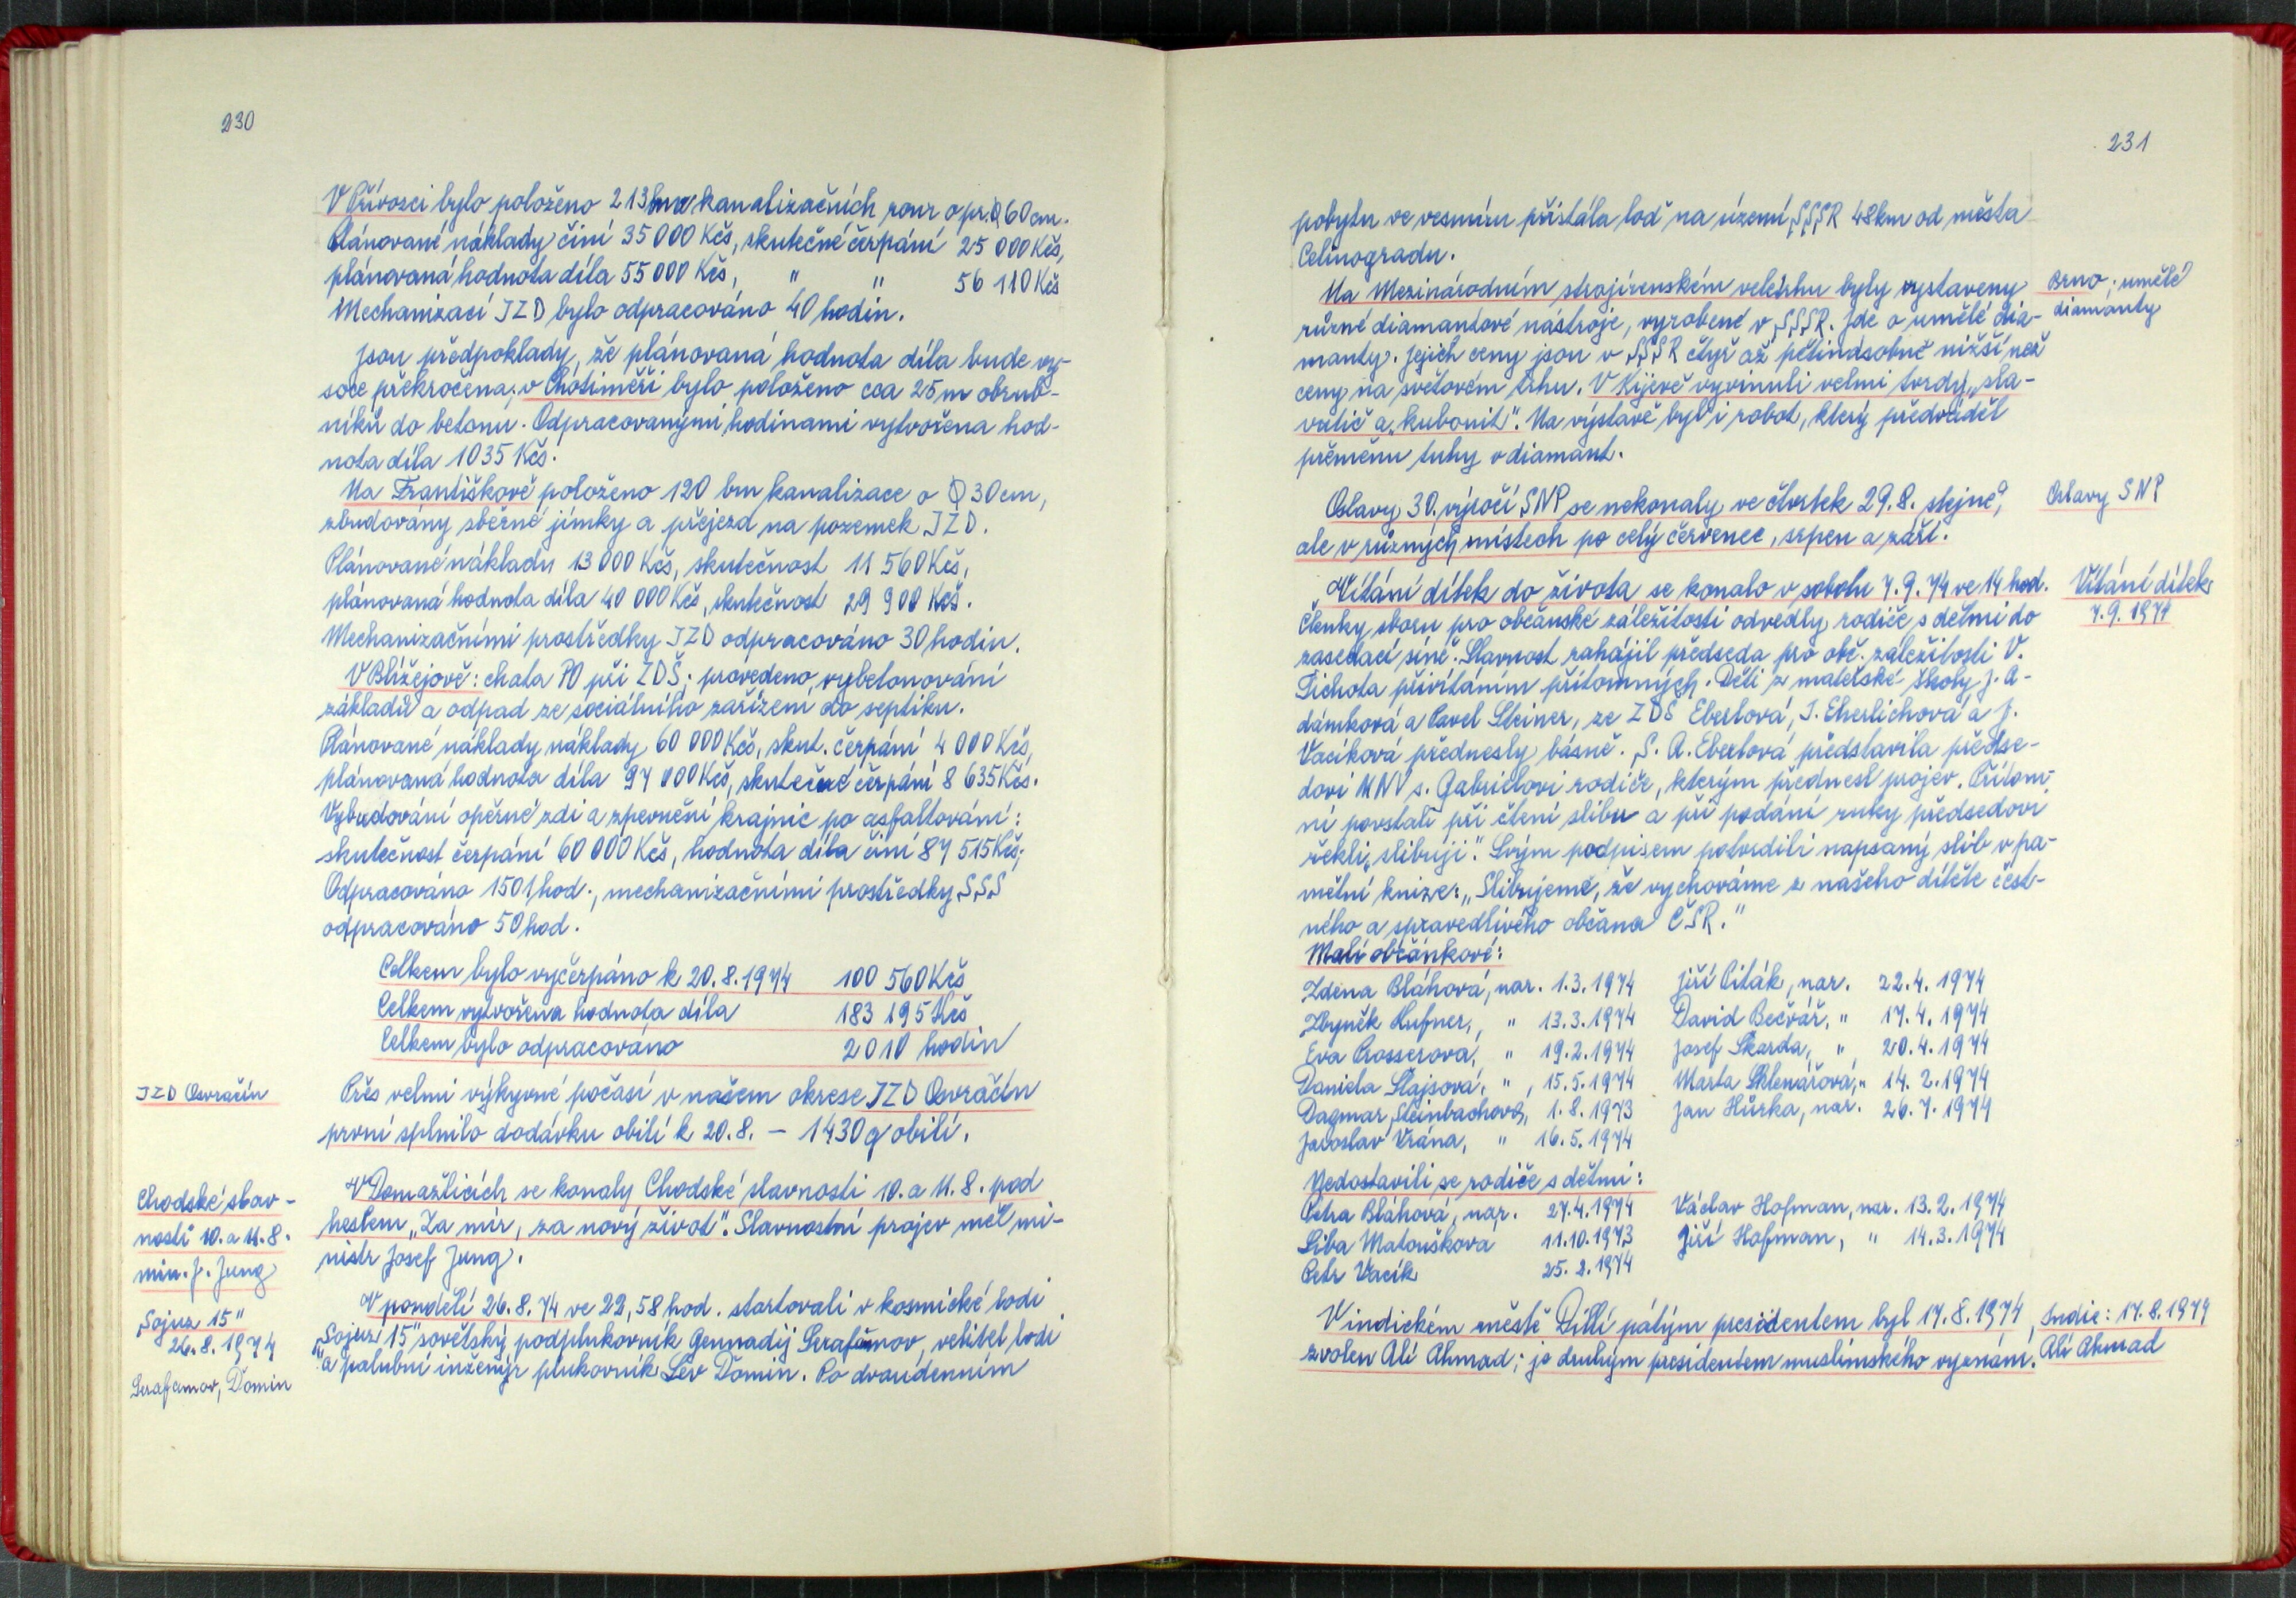 230
V Přívozci bylo položeno 213 bm kanalizačních rour o pr. Ø 60 cm.
Plánované náklady činí 35 000 Kčs, skutečné čerpání 25 000 Kčs,
plánovaná hodnota díla 55 000 Kčs, " " 56 110 Kčs
Mechanizací JZD bylo odpracováno 40 hodin.
Jsou předpoklady, že plánovaná hodnota díla bude vy-
soce překročena; v Chotiměři bylo položeno cca 25 m obrub-
níků do betonu. Odpracovanými hodinami vytvořena hod-
nota díla 1035 Kčs.
Na Františkově položeno 120 bm kanalizace o Ø 30 cm,
zbudovány sběrné jímky a přejezd na pozemek JZD.
Plánované nákladu 13 000 Kčs, skutečnost 11 560 Kčs,
plánovaná hodnota díla 40 000 Kčs, skutečnost 29 900 Kčs.
Mechanizačními prostředky JZD odpracováno 30 hodin.
V Blížejově: chata PO při ZDŠ; provedeno vybetonování
základů a odpad ze sociálního zařízení do septiku.
Plánované náklady náklady 60 000 Kčs, skut. čerpání 4 000 Kčs,
plánovaná hodnota díla 97 000 Kčs, skutečné čerpání 8 635 Kčs.
Vybudování opěrné zdi a zpevnění krajnic po asfaltování:
skutečnost čerpání 60 000 Kčs, hodnota díla činí 87 515 Kčs;
Odpracováno 1501 hod., mechanizačními prostředky SSS
odpracováno 50 hod.
Celkem bylo vyčerpáno k 20.8.1974 100 560 Kčs
Celkem vytvořena hodnota díla 183 195 Kčs
Celkem bylo odpracováno 2010 hodin
JZD Osvračín
Přes velmi výkyvné počasí v našem okrese JZD Osvračín
první splnilo dodávku obilí k 20.8. – 1430 q obilí.
Chodské slav-
nosti 10. a 11.8.
min. J. Jung
V Domažlicích se konaly Chodské slavnosti 10. a 11.8. pod
heslem „Za mír, za nový život". Slavnostní projev měl mi-
nistr Josef Jung.
„Sojuz 15"
26.8.1974
Sarafanov, Domin
V pondělí 26.8.74 ve 22,58 hod. startovali v kosmické lodi
„Sojuz 15" sovětský podplukovník Gennadij Sarafanov, velitel lodi
a palubní inženýr plukovník Lev Domin. Po dvoudenním
231
pobytu ve vesmíru přistála loď na území SSSR 48 km od města
Celinogradu.
Na Mezinárodním strojírenském veletrhu byly vystaveny
různé diamantové nástroje, vyrobené v SSSR. Jde o umělé dia-
manty. Jejich ceny jsou v SSSR čtyř až pětinásobně nižší než
ceny na světovém trhu. V Kijevě vyvinuli velmi tvrdý „sla-
vutič a „kubonit". Na výstavě byl i robot, který předváděl
přeměnu tuhy v diamant.
Brno: umělé
diamanty
Oslavy 30. výročí SNP se nekonaly ve čtvrtek 29.8. stejně,
ale v různých místech po celý červenec, srpen a září.
Oslavy SNP
Vítání dítek do života se konalo v sobotu 7.9.74 ve 14 hod.
Členky sboru pro občanské záležitosti odvedly rodiče s dětmi do
zasedací síně. Slavnost zahájil předseda pro obč. záležitosti V.
Tichota přivítáním přítomných. Děti z mateřské školy J. A-
dámková a Pavel Steiner, ze ZDŠ Eberlová, J. Eherlichová a J.
Vacíková přednesly básně. S. A. Eberlová představila předse-
dovi MNV s. Gabrielovi rodiče, kterým přednesl projev. Přítom-
ní povstali při čtení slibu a při podání ruky předsedovi
řekli „slibuji". Svým podpisem potvrdili napsaný slib v pa-
mětní knize: „Slibujeme, že vychováme z našeho dítěte čest-
ného a spravedlivého občana ČSR."
Vítání dítek
7.9.1974
Malí občánkové:
Zdena Bláhová, nar. 1.3.1974 Jiří Piták, nar. 22.4.1974
Zbyněk Hufner, " 13.3.1974 David Bečvář, " 17.4.1974
Eva Prosserová, " 19.2.1974 Josef Škarda, " 20.4.1974
Daniela Šlajsová, " 15.5.1974 Marta Sklenářová, " 14.2.1974
Dagmar Steinbachová, 1.8.1973 Jan Hůrka, nar. 26.7.1974
Jaroslav Vrána, " 16.5.1974
Nedostavili se rodiče s dětmi:
Petra Bláhová, nar. 27.4.1974 Václav Hofman, nar. 13.2.1974
Liba Matoušková 11.10.1973 Jiří Hofman, " 14.3.1974
Petr Vacík 25.2.1974
V indickém městě Dillí pátým presidentem byl 17.8.1974
zvolen Ali Ahmad; je druhým presidentem muslimského vyznání.
Indie: 17.8.1974
Ali Ahmad